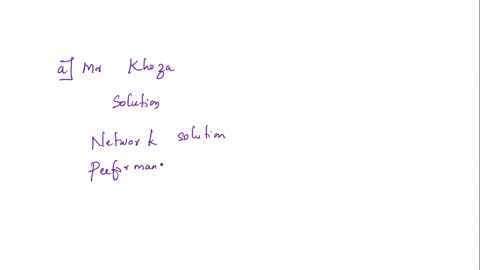 a] Mr Khoza
Solution
Network solution
Peeforman